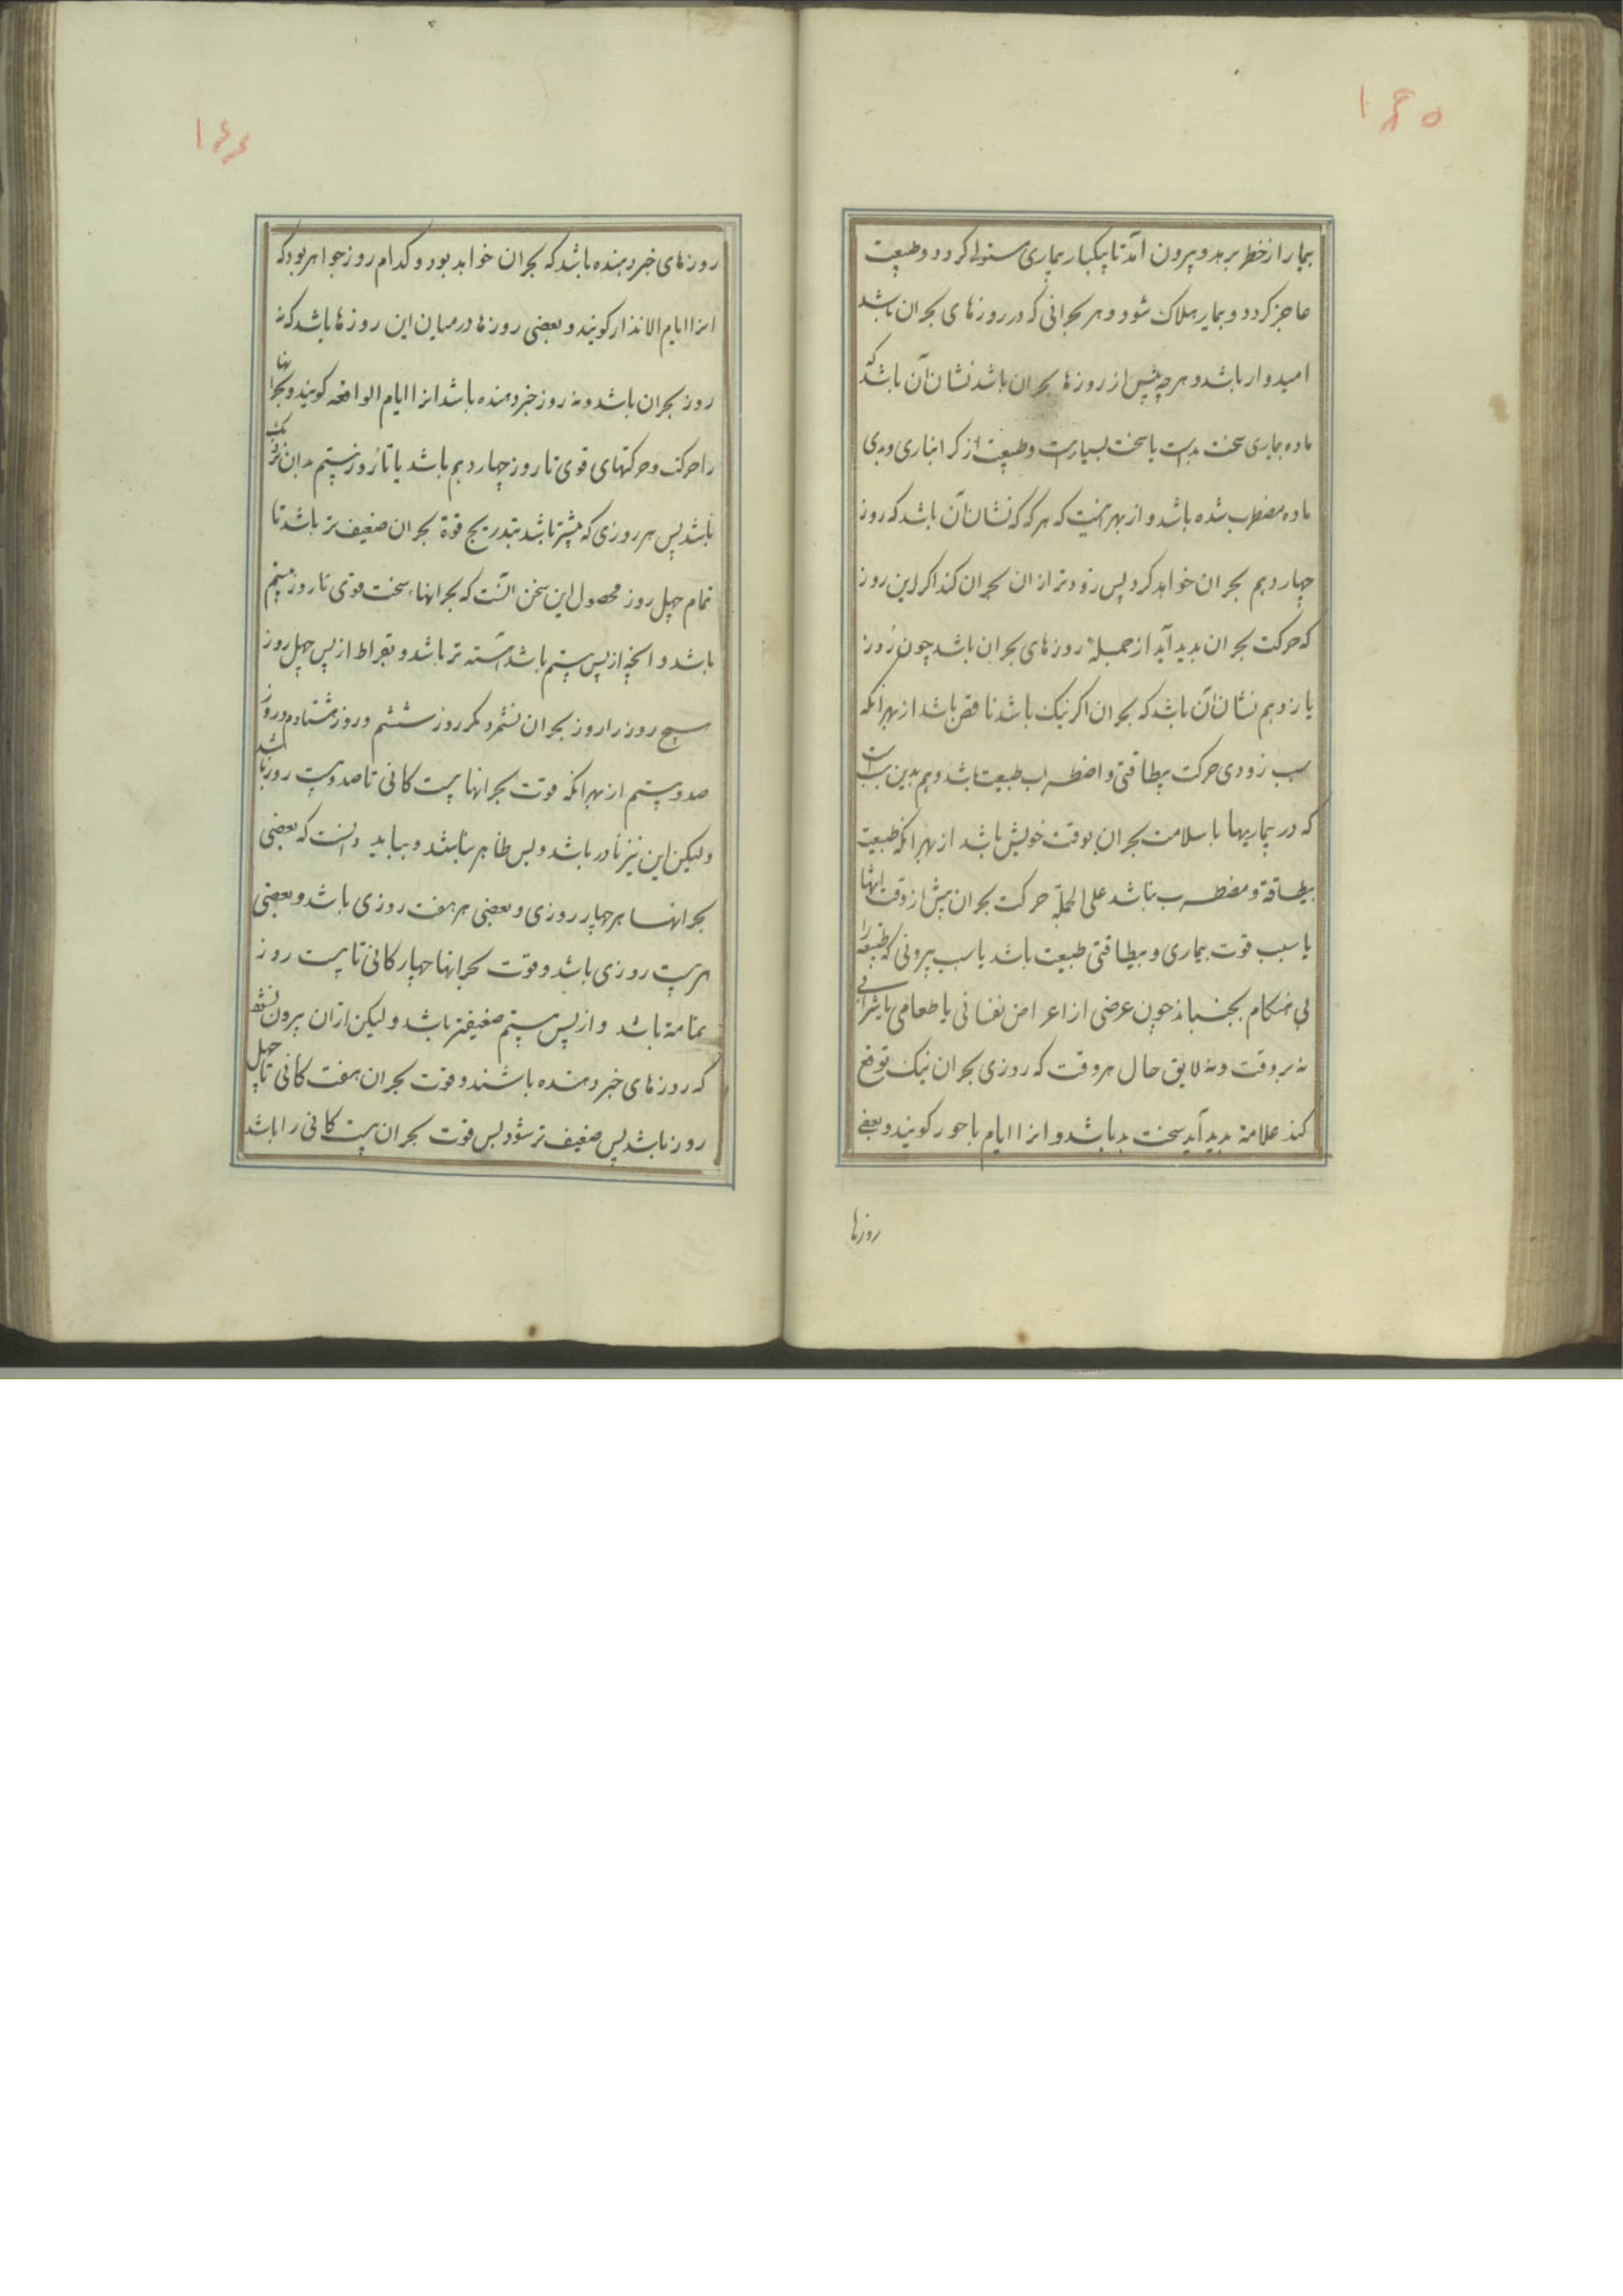 ۱۴۵
بیمار از خطر برهد و بیرون آمد تا یکبار بیماری مستولی کردد و طبیعت
عاجز کردد و بیمار هلاک شود و هر بحرانی که در روزهای بحران باشد
امیدوار باشد و هرچه پیش از روزها بحران باشد نشان آن باشد که
ماده بیماری سخت بدست یا سخت بسیارست و طبیعت از کرانباری و بدی
ماده مضطرب شده باشد و از بهر اینست که هرکه که نشان آن باشد که روز
چهاردهم بحران خواهد کرد پس زودتر از ان بحران کند اکر این روز
که حرکت بحران بدید آید از جملهٔ روزهای بحران باشد چون روز
یازدهم نشان آن باشد که بحران اکر نیک باشد ناقص باشد از بهر انکه
سبب زودی حرکت بیطاقتی و اضطراب طبیعت باشد و هم بدین سبب است
که در بیماریها با سلامت بحران بوقت خویش باشد از بهر انکه طبیعت
بیطاقة و مضطرب نباشد علی الجملة حرکت بحران پیش از وقت انتها
یا سبب قوت بیماری و بیطاقتی طبیعت باشد یا سبب بیرونی که طبیعة را
بی هنکام بجنباند چون عرضی از اعراض نفسانی یا طعامی یا شرابی
نه بروقت و نه لایق حال هر وقت که روزی بحران نیک توقع
کنند علامة بدید آید سخت بد باشد و انرا ایام باحور کویند و بعضی
روزها
۱۴۶
روزهای خبر دهنده باشد که بحران خواهد بود و کدام روز خواهد بود که
انرا ایام الانذار کویند و بعضی روزها در میان این روزها باشد که نه
روز بحران باشد و نه روز خبر دهنده باشد انرا ایام الواقعه کویند و بحرانها
را حرکت و حرکتهای قوی تا روز چهاردهم باشد یا تا روز بیستم بدان نزدیک
باشد پس هر روزی که بیشتر باشد بتدریج قوة بحران ضعیف تر باشد تا
تمام چهل روز محصول این سخن آنست که بحرانهاء سخت قوی تا روز بیستم
باشد و انچه از پس بیستم باشد آهسته تر باشد و بقراط از پس چهل روز
هیچ روز را روز بحران نشمرد مکر روز شصتم و روز هشتادم و روز
صد و بیستم از بهر انکه قوت بحرانها بیست کانی تا صد و بیست روز باشد
ولیکن این نیز نادر باشد و بس ظاهر نباشد و بباید دانست که بعضی
بحرانها هر چهار روزی و بعضی هر هفت روزی باشد و بعضی
هر بیست روزی باشد و قوت بحرانها چهارکانی تا بیست روز
تمامة باشد و از پس بیستم ضعیفتر باشد ولیکن از ان بیرون نشود
که روزهای خبر دهنده باشند و قوت بحران هفت کانی تا چهل
روز باشد پس ضعیف تر شود پس قوت بحران بیست کانی را باشد